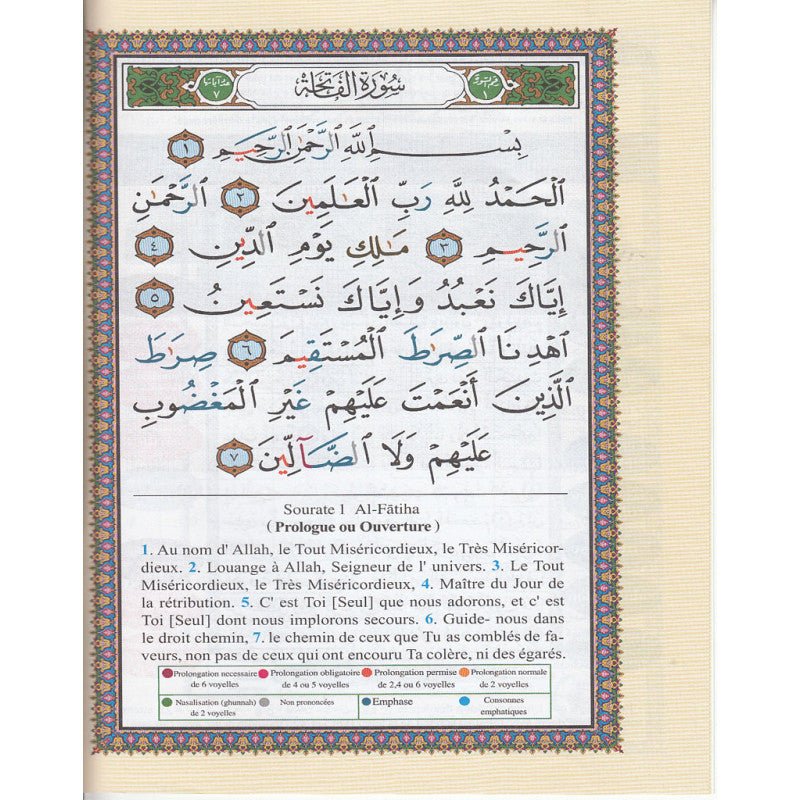 رقم السورة ١
سُورَةُ الفَاتِحَة
عدد آياتها ٧
بِسْمِ ٱللَّهِ ٱلرَّحْمَٰنِ ٱلرَّحِيمِ ١
ٱلْحَمْدُ لِلَّهِ رَبِّ ٱلْعَٰلَمِينَ ٢ ٱلرَّحْمَٰنِ
ٱلرَّحِيمِ ٣ مَٰلِكِ يَوْمِ ٱلدِّينِ ٤
إِيَّاكَ نَعْبُدُ وَإِيَّاكَ نَسْتَعِينُ ٥
ٱهْدِنَا ٱلصِّرَٰطَ ٱلْمُسْتَقِيمَ ٦ صِرَٰطَ
ٱلَّذِينَ أَنْعَمْتَ عَلَيْهِمْ غَيْرِ ٱلْمَغْضُوبِ
عَلَيْهِمْ وَلَا ٱلضَّآلِّينَ ٧
Sourate 1 Al-Fātiha
( Prologue ou Ouverture )
1. Au nom d' Allah, le Tout Miséricordieux, le Très Miséricor-
dieux. 2. Louange à Allah, Seigneur de l' univers. 3. Le Tout
Miséricordieux, le Très Miséricordieux, 4. Maître du Jour de
la rétribution. 5. C' est Toi [Seul] que nous adorons, et c' est
Toi [Seul] dont nous implorons secours. 6. Guide- nous dans
le droit chemin, 7. le chemin de ceux que Tu as comblés de fa-
veurs, non pas de ceux qui ont encouru Ta colère, ni des égarés.
Prolongation necessaire de 6 voyelles
Prolongation obligatoire de 4 ou 5 voyelles
Prolongation permise de 2,4 ou 6 voyelles
Prolongation normale de 2 voyelles
Nasalisation (ghunnah) de 2 voyelles
Non prononcées
Emphase
Consonnes emphatiques